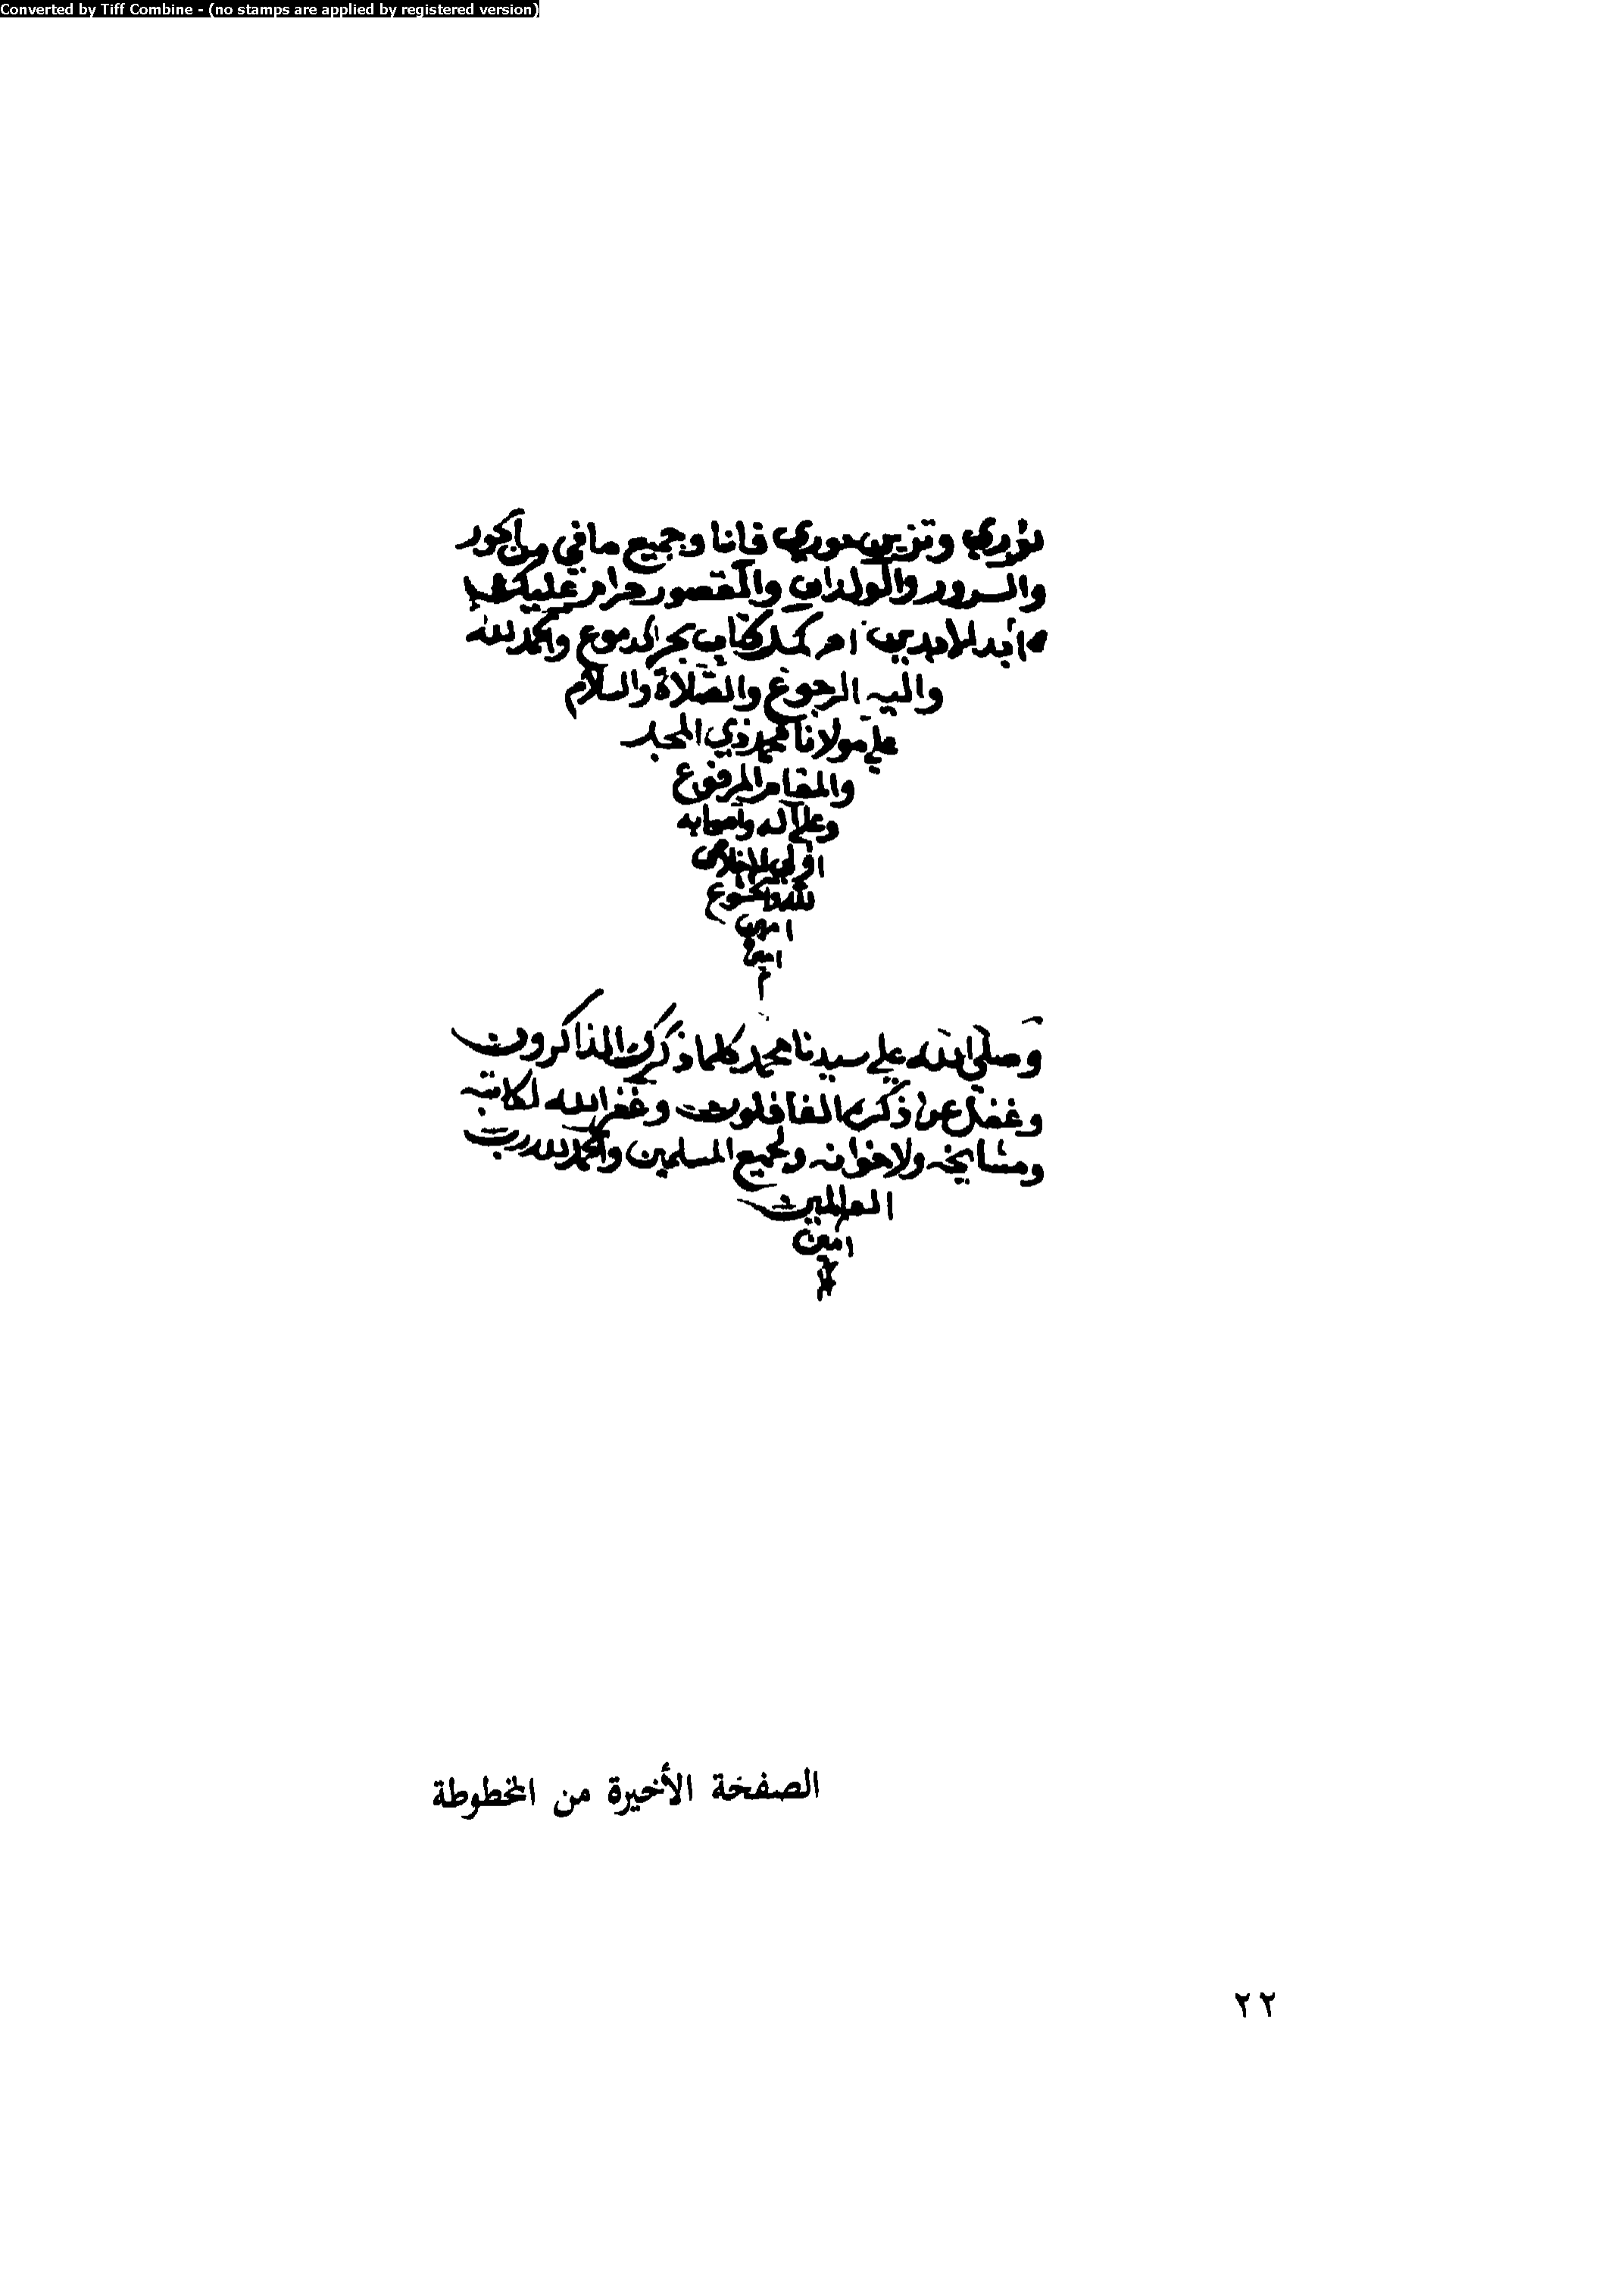 Converted by Tiff Combine - (no stamps are applied by registered version)
نوري وتزين حوري فانا وجميع ما في من الحور
والسرور والولدان والقصور حرام عليك
ابد الابدين كمل كتاب بحر الدموع والحمد لله
واليه الرجوع والصلاة والسلام
علي مولانا محمد ذي المجد
والمقام المرفوع
وعلي آله واصحابه
اولي الاخلاص
لله والخشوع
امين
امين
م
وصلي الله علي سيدنا محمد كلما ذكرك الذاكرون
وغفل عن ذكرك الغافلون وغفر الله لكاتبه
ومشايخه ولاخوانه ولجميع المسلمين والحمد لله رب
العالمين
امين
الصفخة الأخيرة من المخطوطة
٢٢